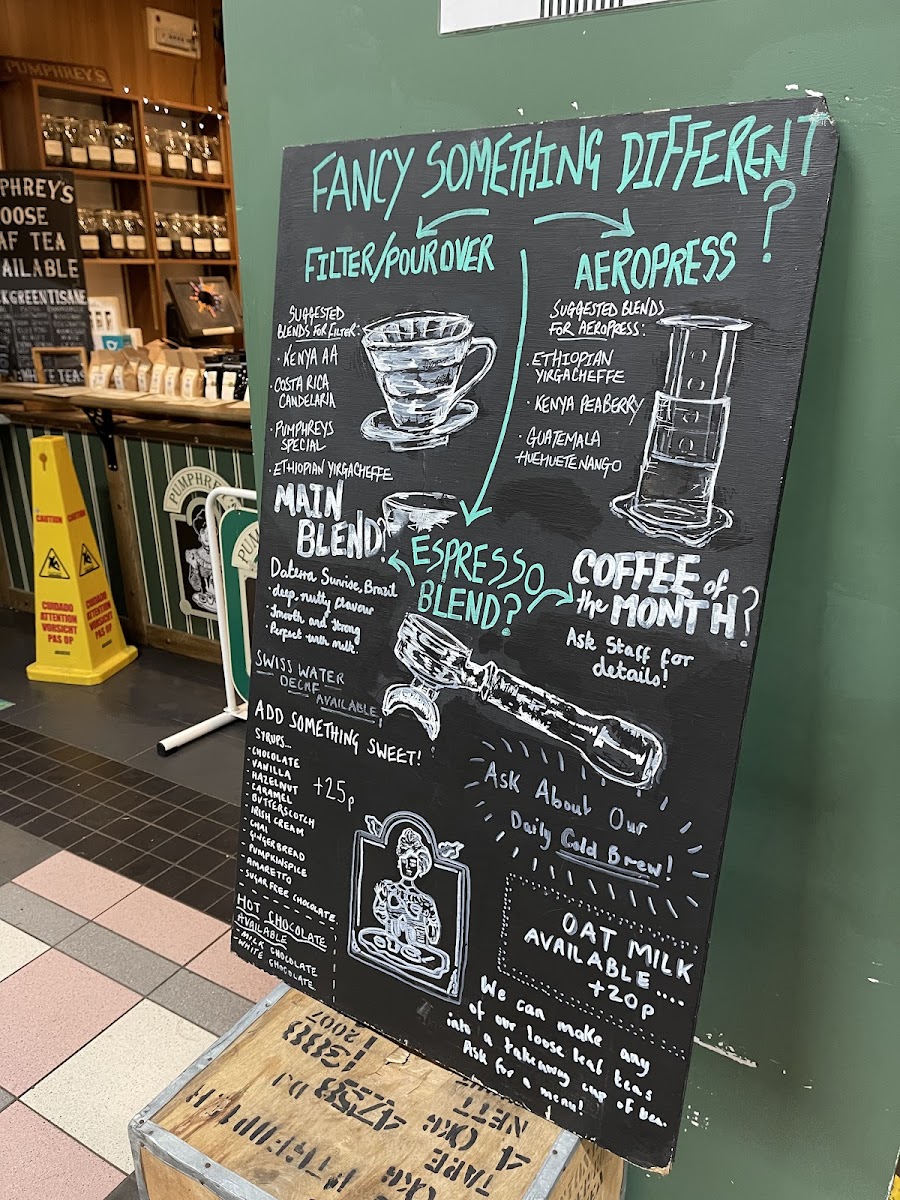 FANCY SOMETHING DIFFERENT?
FILTER/POUROVER
SUGGESTED
BLENDS FOR FILTER:
· KENYA AA
· COSTA RICA
CANDELARIA
· PUMPHREYS
SPECIAL
· ETHIOPIAN YIRGACHEFFE
AEROPRESS
SUGGESTED BLENDS
FOR AEROPRESS:
· ETHIOPIAN
YIRGACHEFFE
· KENYA PEABERRY
· GUATEMALA
HUEHUETENANGO
ESPRESSO
BLEND?
MAIN
BLEND?
Daterra Sunrise, Brazil
· deep, nutty flavour
· Smooth and strong
· Perfect with milk.
SWISS WATER
DECAF
AVAILABLE!
COFFEE of
the MONTH?
Ask Staff for
details!
ADD SOMETHING SWEET!
SYRUPS...
+25p
· CHOCOLATE
· VANILLA
· HAZELNUT
· CARAMEL
· BUTTERSCOTCH
· IRISH CREAM
· CHAI
· GINGERBREAD
· PUMPKINSPICE
· AMARETTO
· SUGAR FREE CHOCOLATE
HOT CHOCOLATE
AVAILABLE
· MILK CHOCOLATE
· WHITE CHOCOLATE
Ask About Our
Daily Cold Brew!
OAT MILK
AVAILABLE ....
+20p
We can make any
of our loose leaf teas
into a takeaway cup of tea.
Ask for a menu!
PUMPHREY'S
PHREY'S
OOSE
AF TEA
AILABLE
CK GREEN TISANE
WHITE TEAS
CAUTION
CAUTION
CUIDADO
ATTENTION
VORSICHT
PAS OP
CUIDADO
ATTENTION
VORSICHT
PAS OP
PUMPHREY'S
PUM
2007
1300
4758 DJ
NETT
0KG
TARE
4 KG